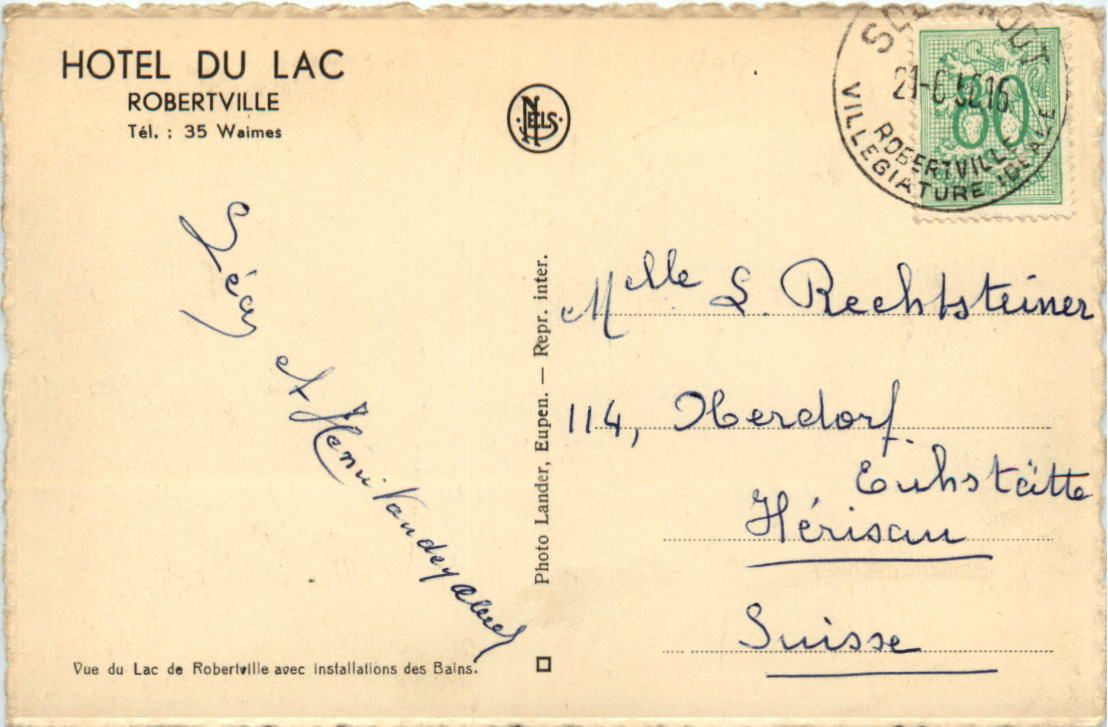 HOTEL DU LAC
ROBERTVILLE
Tél. : 35 Waimes
NELS
80
ROBERTVILLE
VILLEGIATURE IDEALE
Léon
et Henri
Photo Lander, Eupen. — Repr. inter.
Melle L. Rechtsteiner
114, Oberdorf
Hérisau
Suisse
Vue du Lac de Robertville avec installations des Bains.